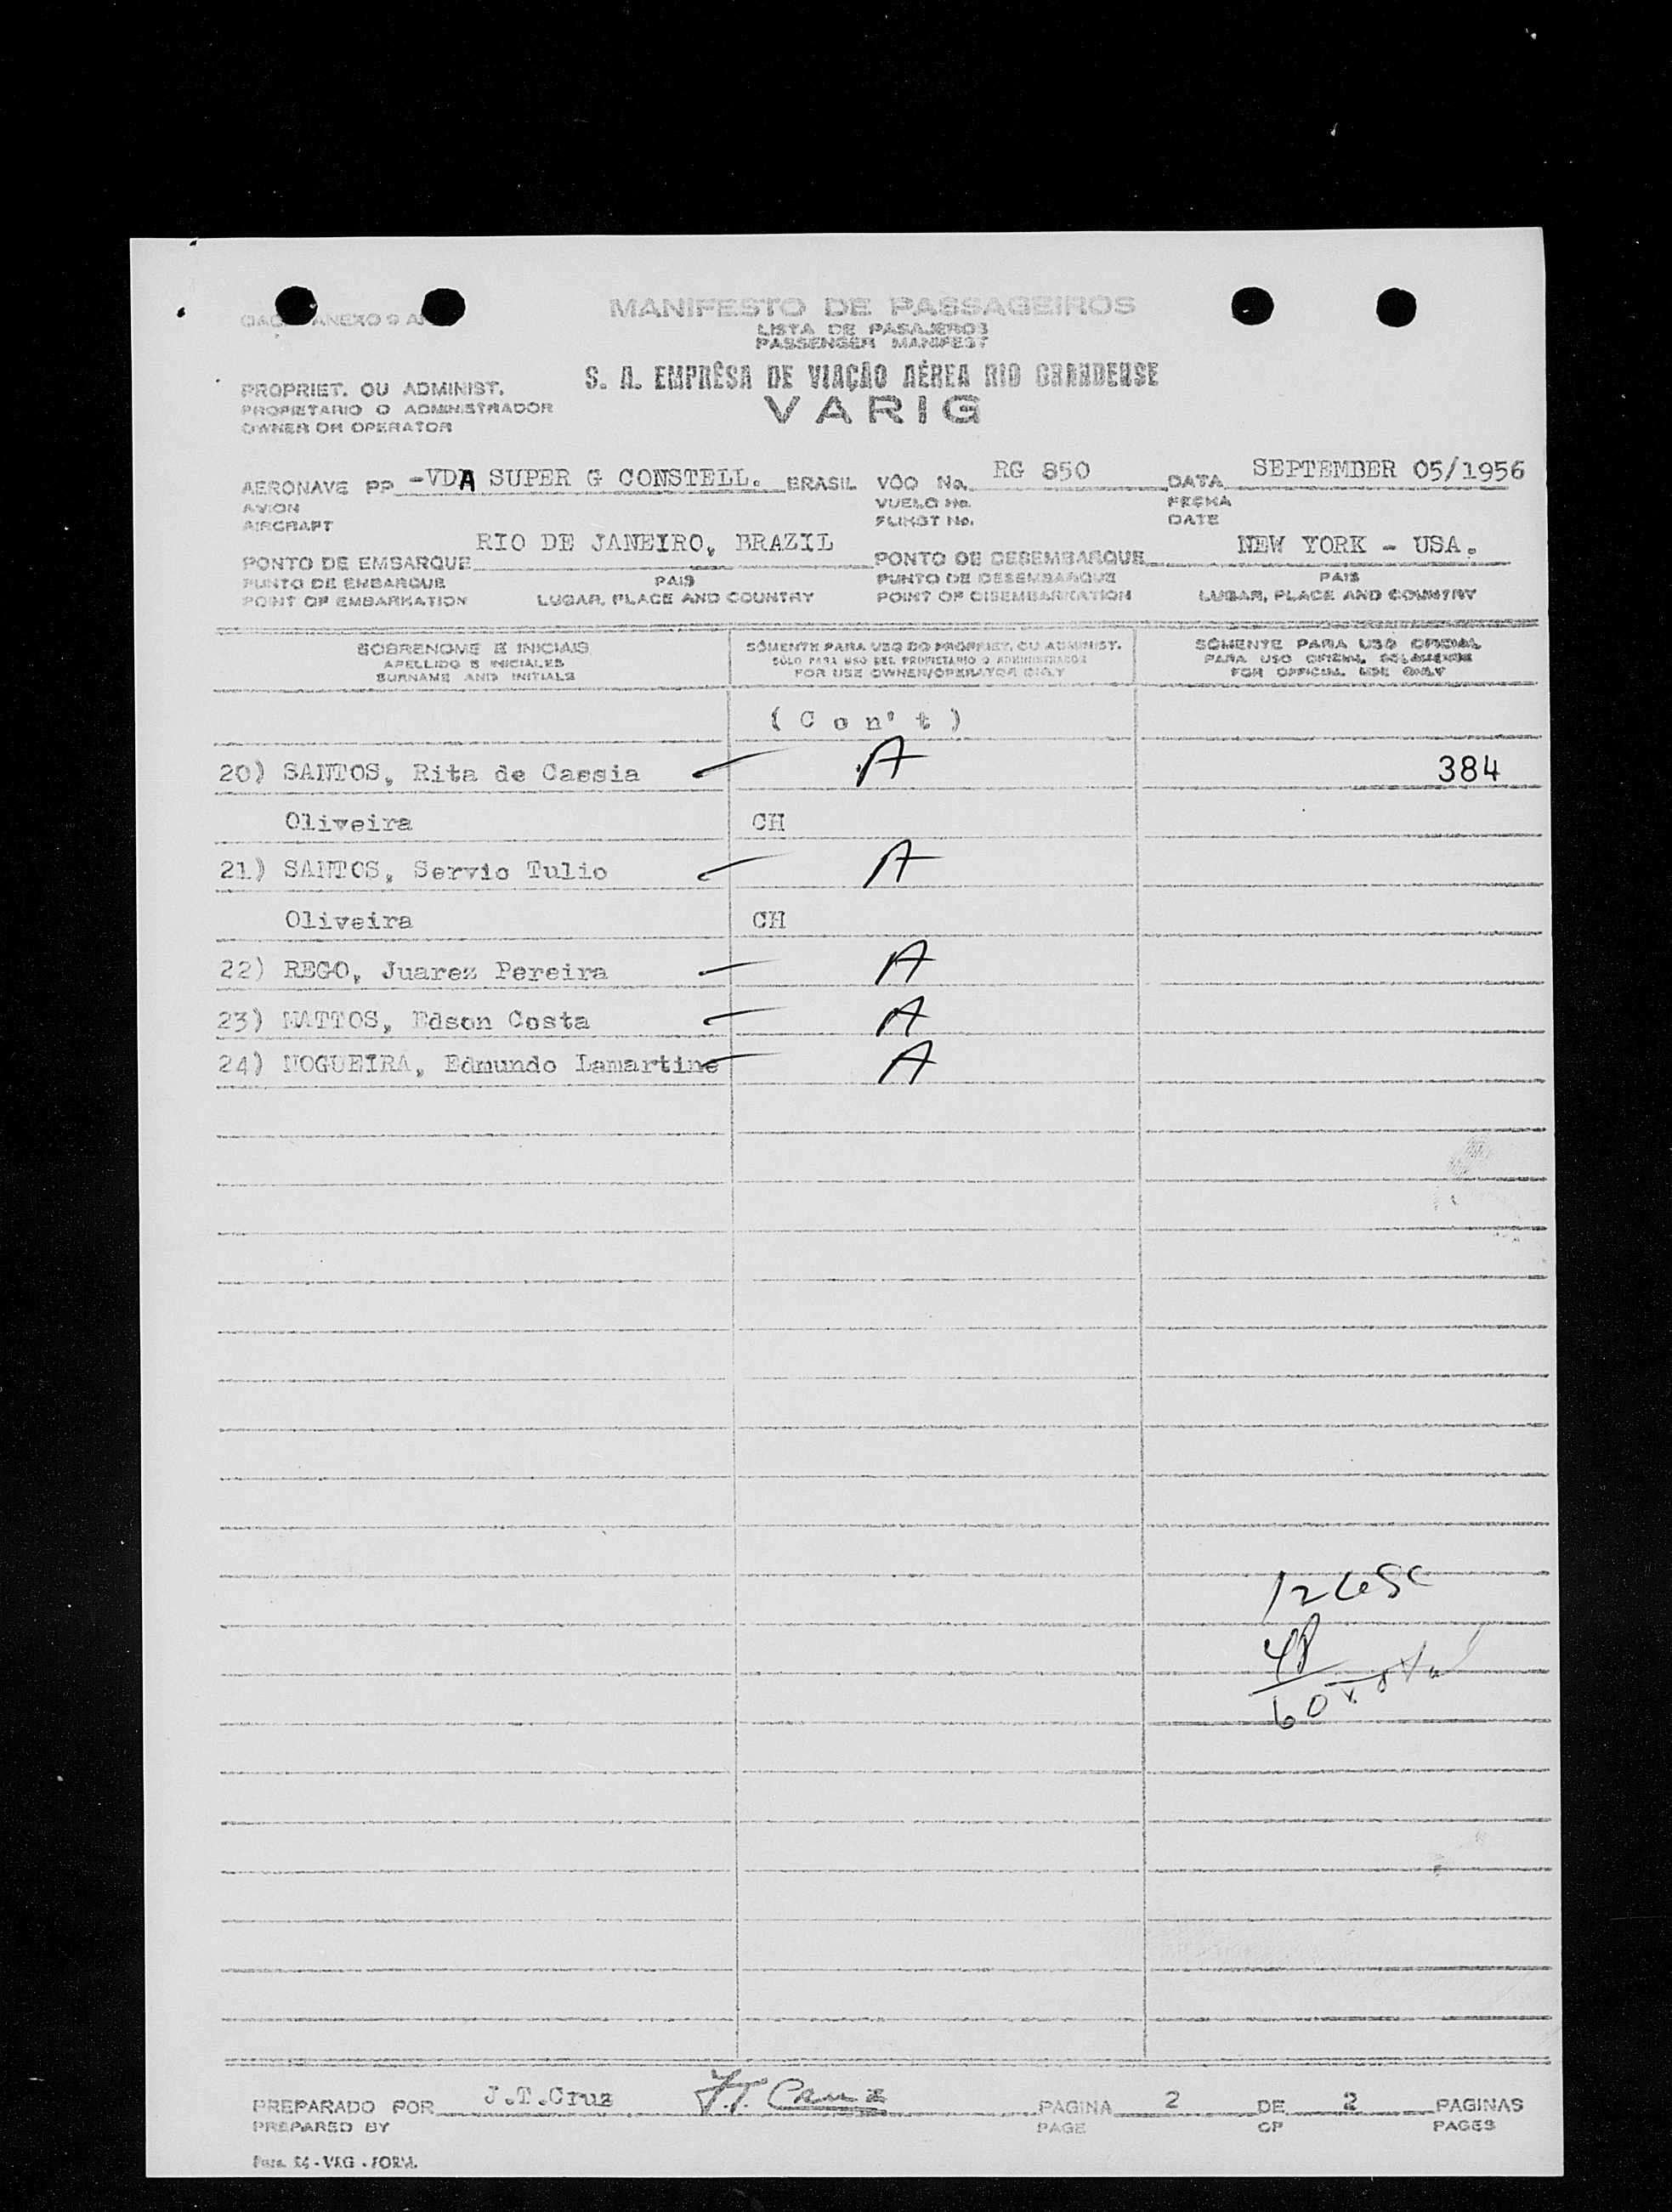 ANEXO 9
MANIFESTO DE PASSAGEIROS
LISTA DE PASAJEROS
PASSENGER MANIFEST
PROPRIET. OU ADMINIST.
PROPIETARIO O ADMINISTRADOR
OWNER OR OPERATOR
S. A. EMPRÊSA DE VIAÇÃO AÉREA RIO GRANDENSE
VARIG
AERONAVE PP -VDA SUPER G CONSTELL. BRASIL VÔO No. RG 850 DATA SEPTEMBER 05/1956
AVION VUELO No. FECHA
AIRCRAFT FLIHGT No. DATE
PONTO DE EMBARQUE RIO DE JANEIRO, BRAZIL PONTO DE DESEMBARQUE NEW YORK - USA.
PUNTO DE EMBARQUE PAIS PUNTO DE DESEMBARQUE PAIS
POINT OF EMBARKATION LUGAR, PLACE AND COUNTRY POINT OF DISEMBARKATION LUGAR, PLACE AND COUNTRY
SOBRENOME E INICIAIS SÓMENTE PARA USO DO PROPRIET. OU ADMINIST. SÓMENTE PARA USO OFICIAL
APELLIDO E INICIALES SÓLO PARA USO DEL PROPIETARIO O ADMINISTRADOR PARA USO OFICIAL SOLAMENTE
SURNAME AND INITIALS FOR USE OWNER/OPERATOR ONLY FOR OFFICIAL USE ONLY
( C o n' t )
20) SANTOS, Rita de Cassia A 384
Oliveira CH
21) SANTOS, Servio Tulio A
Oliveira CH
22) REGO, Juarez Pereira A
23) MATTOS, Edson Costa A
24) NOGUEIRA, Edmundo Lamartine A
12
48
60
PREPARADO POR J.T.Cruz J.T. Cruz PAGINA 2 DE 2 PAGINAS
PREPARED BY PAGE OF PAGES
VRG - FORM.